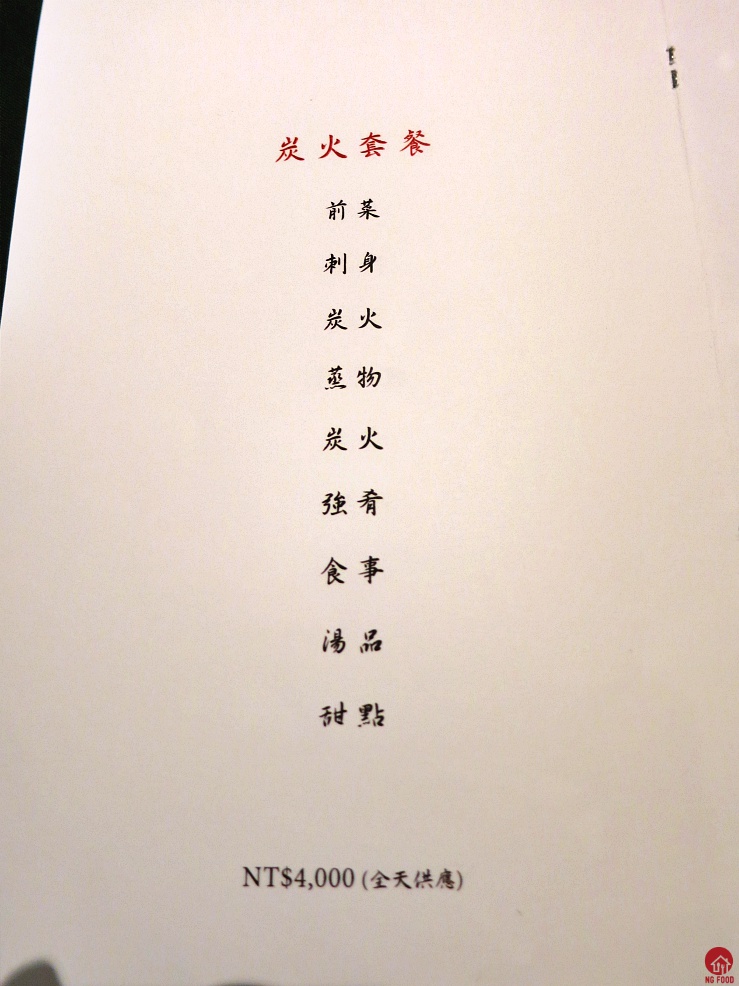 炭火套餐
前菜
刺身
炭火
蒸物
炭火
強肴
食事
湯品
甜點
NT$4,000 (全天供應)
NG FOOD